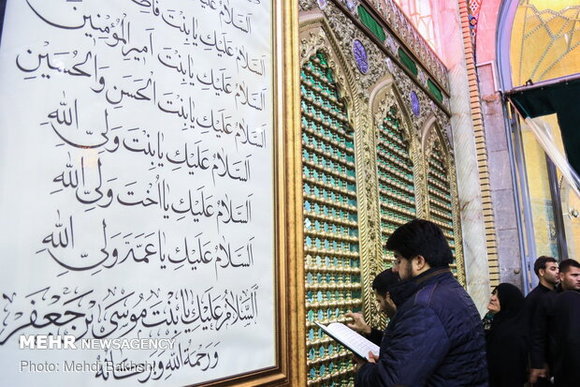 السَّلامُ عَلَيْكِ يابِنْتَ فاطِمَةَ
السَّلامُ عَلَيْكِ يابِنْتَ أَميرِ المُؤْمِنينَ
السَّلامُ عَلَيْكِ يابِنْتَ الحَسَنِ وَالحُسَيْنِ
السَّلامُ عَلَيْكِ يابِنْتَ وَلِيِّ اللهِ
السَّلامُ عَلَيْكِ ياأُخْتَ وَلِيِّ اللهِ
السَّلامُ عَلَيْكِ ياعَمَّةَ وَلِيِّ اللهِ
السَّلامُ عَلَيْكِ يابِنْتَ مُوسَى بْنِ جَعْفَرٍ
وَرَحْمَةُ اللهِ وَبَرَكاتُهُ
MEHR NEWSAGENCY
Photo: Mehdi Bakhshi